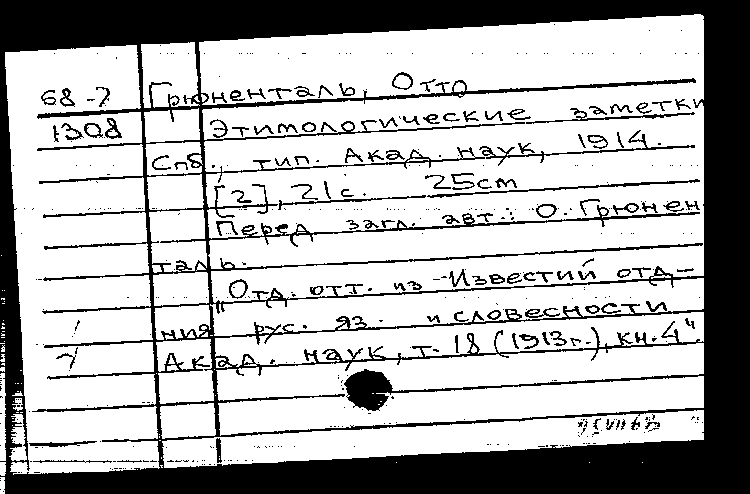 68-7 Грюненталь, Отто
1308 Этимологические заметки
Спб., тип. Акад. наук, 1914.
[2], 21 с. 25cm
Перед загл. авт.: О. Грюнен
таль.
„Отд. отт. из Известий отд-
ния рус. яз. и словесности
Акад. наук, т. 18 (1913 г.), кн. 4".